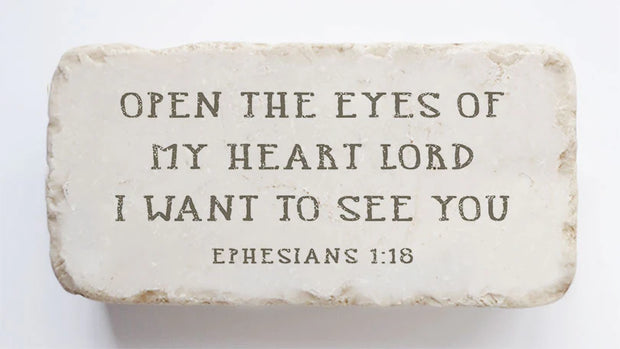 OPEN THE EYES OF
MY HEART LORD
I WANT TO SEE YOU
EPHESIANS 1:18